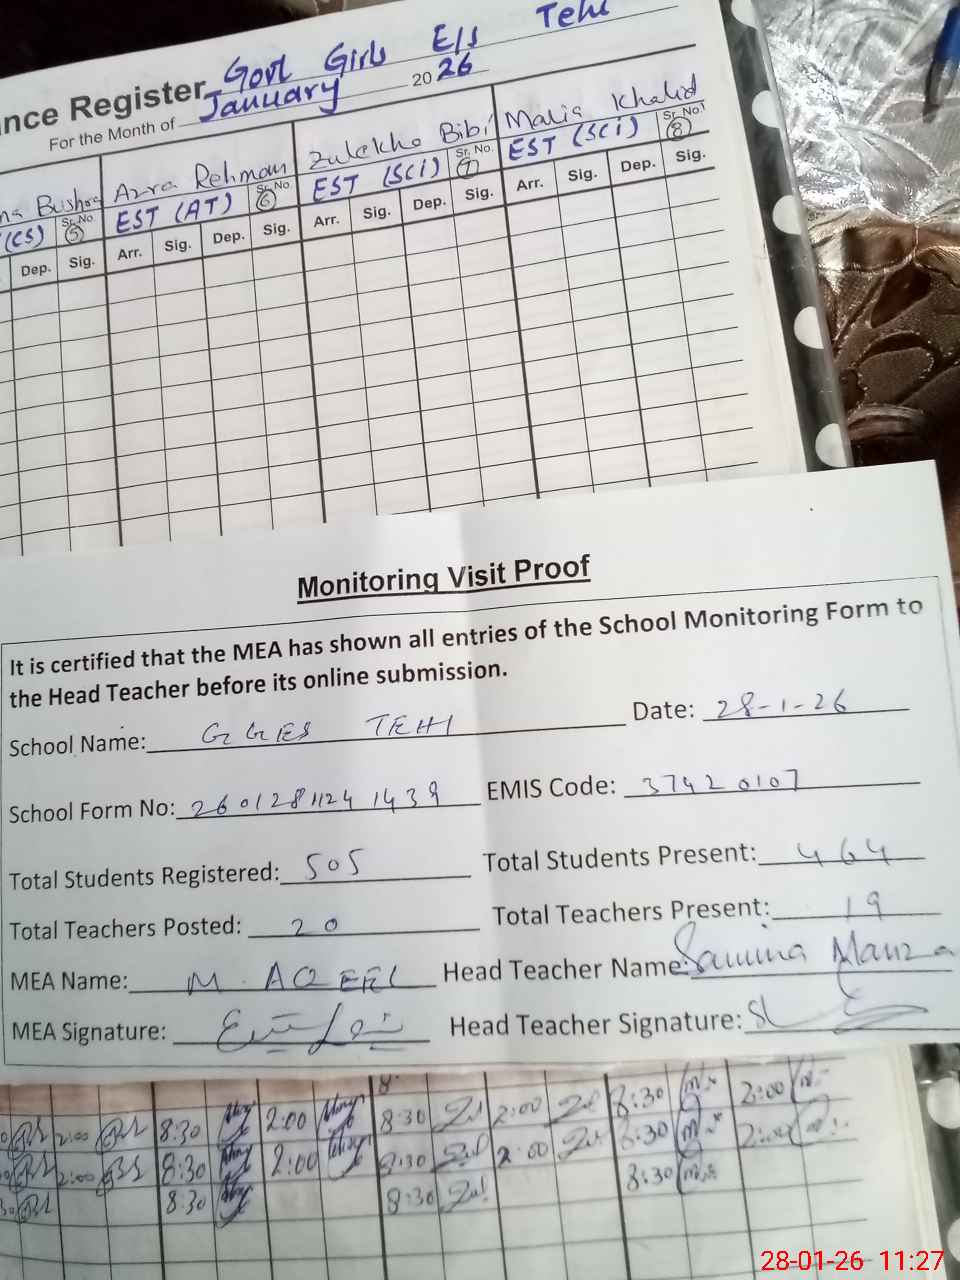 Govt Girls E/S Tehi
nce Register
For the Month of January 2026
na Bushra Azra Rehman Zulekha Bibi Malia Khalid
(CS) Sr. No. 5 EST (AT) Sr. No. 6 EST (SCI) Sr. No. 7 EST (SCI) Sr. No. 8
Dep. Sig. Arr. Sig. Dep. Sig. Arr. Sig. Dep. Sig. Arr. Sig. Dep. Sig.
Monitoring Visit Proof
It is certified that the MEA has shown all entries of the School Monitoring Form to
the Head Teacher before its online submission.
School Name: GGES TEHI Date: 28-1-26
School Form No: 2601281124 1439 EMIS Code: 37420107
Total Students Registered: 505 Total Students Present: 464
Total Teachers Posted: 20 Total Teachers Present: 19
MEA Name: M. AQEEL Head Teacher Name: Samina Manza
MEA Signature: Head Teacher Signature:
2:00 8:30 2:00 8:30 2:00 8:30 2:00
2:00 8:30 2:00 8:30 2:00 8:30 2:00
8:30 8:30 8:30
28-01-26 11:27